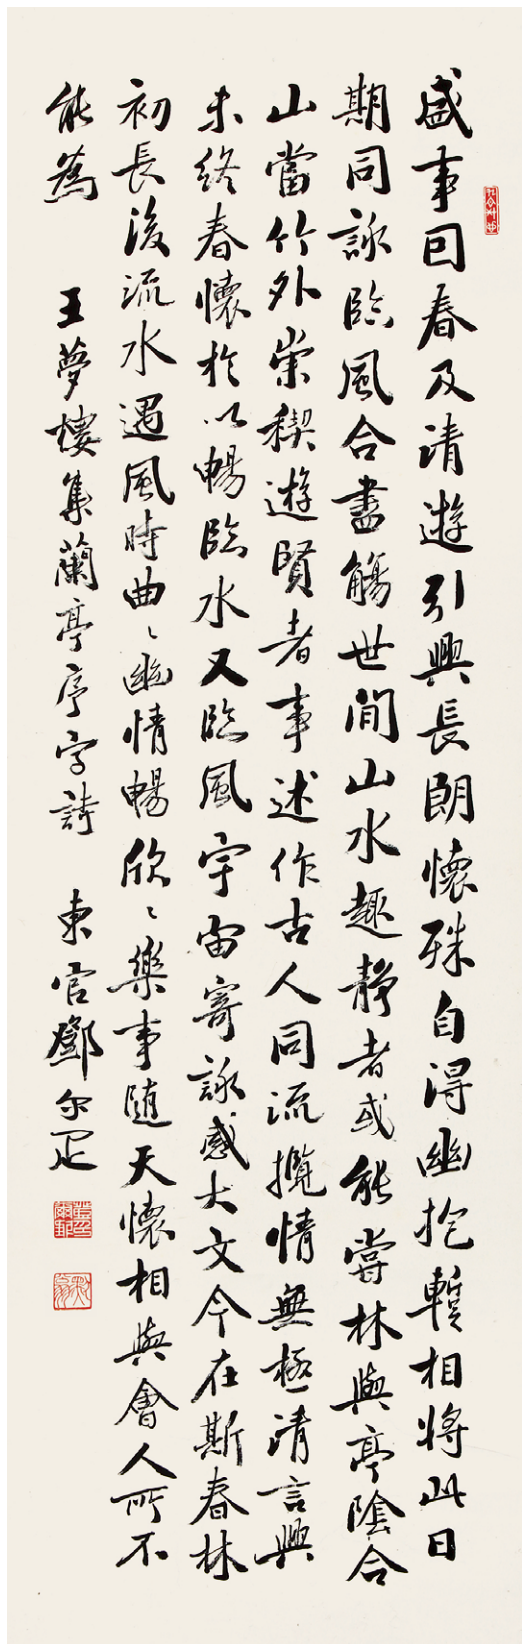 盛事回春及清遊引興長朗懷殊自得幽抱暫相將此日
期同詠臨風合盡觴世間山水趣靜者或能嘗林與亭陰合
山當竹外崇稧遊賢者事述作古人同流攬情無極清言興
未終春懷於以暢臨水又臨風宇宙寄詠感大文今在斯春林
初長後流水遇風時曲〻幽情暢欣〻樂事隨天懷相與會人所不
能為
王夢樓集蘭亭序字詩
東官鄧尔疋